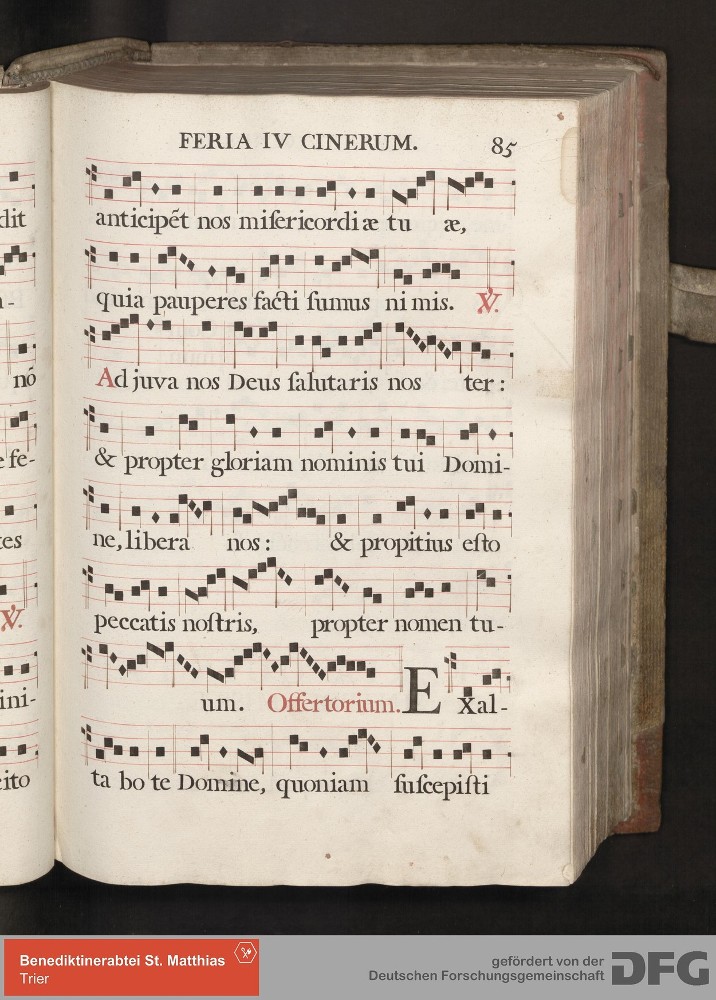 FERIA IV CINERUM. 85
anticipēt nos miſericordiæ tu æ,
quia pauperes facti ſumus nimis. ℣.
Adjuva nos Deus ſalutaris nos ter:
& propter gloriam nominis tui Domi-
ne, libera nos: & propitius eſto
peccatis noſtris, propter nomen tu-
um. Offertorium. EXal-
ta bo te Domine, quoniam ſuſcepiſti
dit
nō
efe-
tes
℣.
ini-
cito
Benediktinerabtei St. Matthias
Trier
gefördert von der
Deutschen Forschungsgemeinschaft DFG